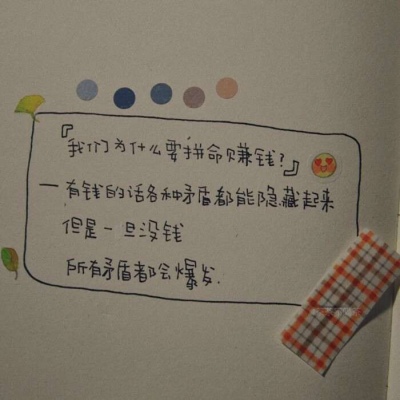 『我们为什么要拼命赚钱？』
一有钱的话各种矛盾都能隐藏起来
但是一旦没钱
所有矛盾都会爆发.